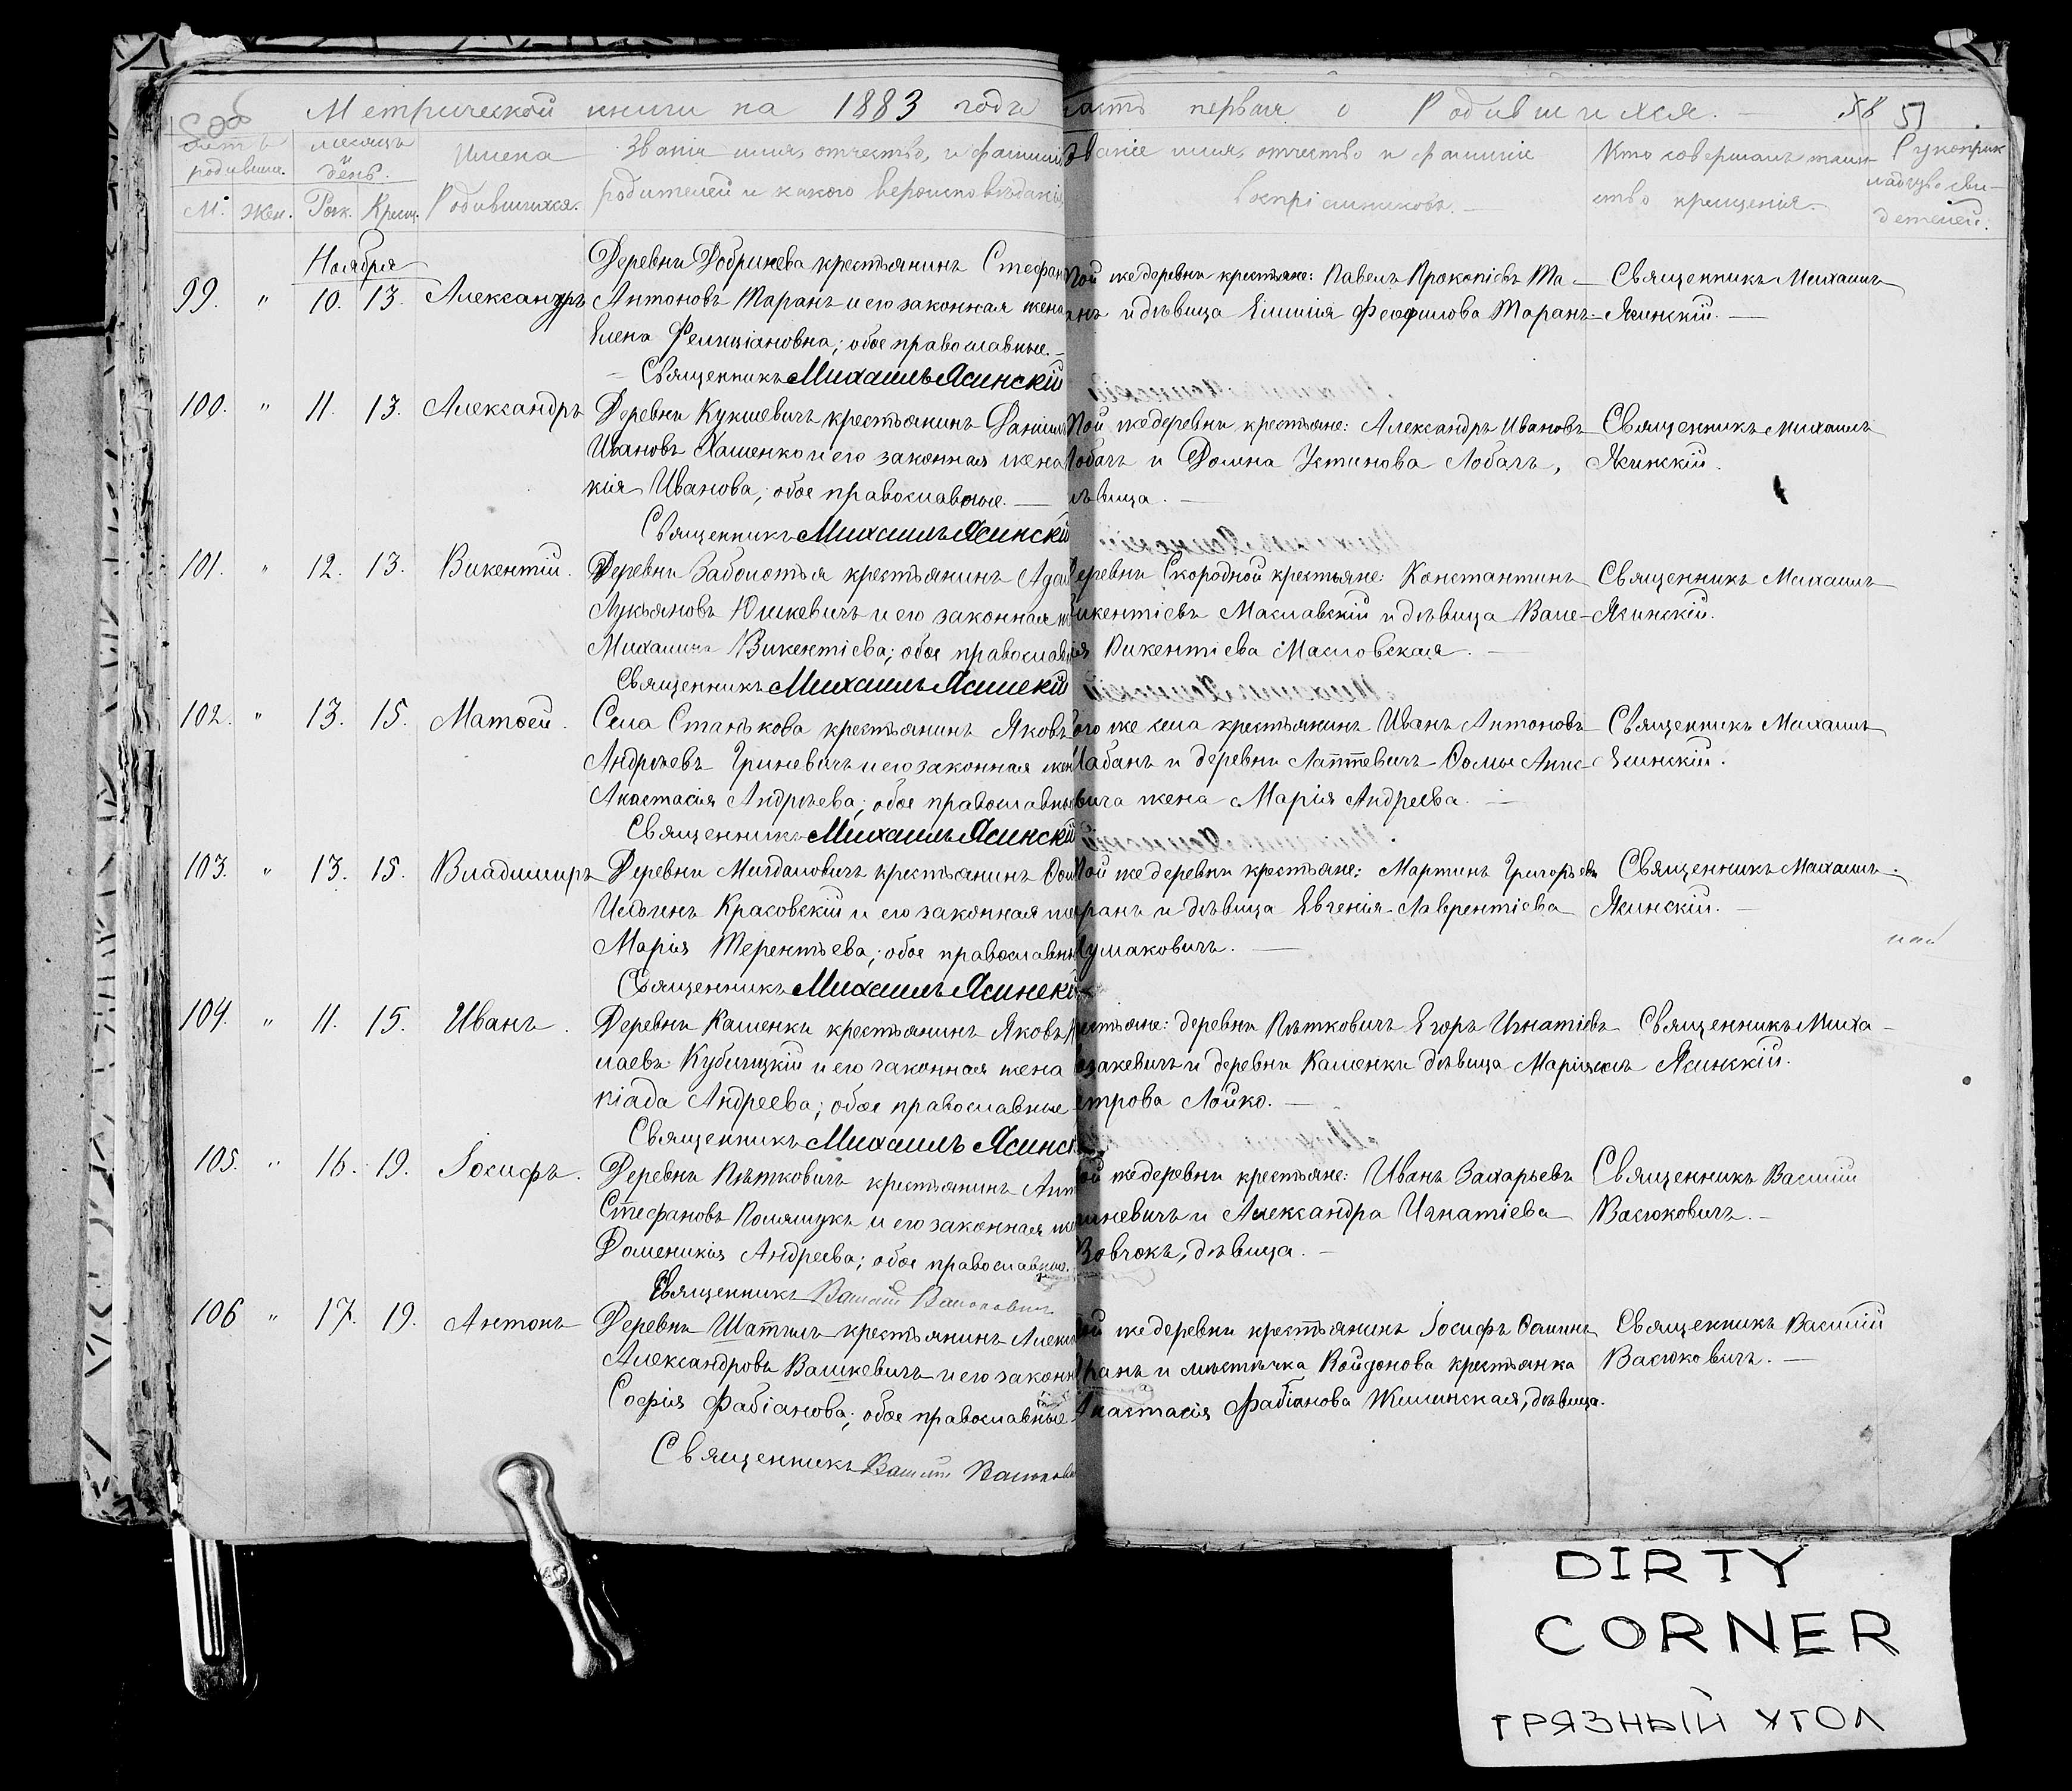 Метрической книги на 1883 годъ
часть первая о Родившихся. 58 51
Счетъ родивших. М. Жен.
месяцъ и день. Рож. Крещ.
Имена Родившихся.
Званіе имя, отчество, и фамилія
родителей и какого вероисповѣданія
Званіе имя, отчество и фамиліе
воспріемниковъ.
Кто совершалъ таин-
ство крещенія.
Рукоприк
ладство сви-
детелей.
Ноября
99. " 10. 13. Александръ
Деревни Добринева крестьянинъ Стефан
Антоновъ Таранъ и его законная жена
Елена Фелиціановна; обое православные.
Священникъ Михаилъ Ясинскій
Той же деревни крестьяне: Павелъ Прокопіевъ Та-
ранъ и дѣвица Емилія Феофилова Таранъ.
Священникъ Михаилъ
Ясинскій.
100. " 11. 13. Александръ
Деревни Кукшевичъ крестьянинъ Даніилъ
Ивановъ Хаменко и его законная жена
кія Иванова; обое православные.
Священникъ Михаилъ Ясинскій
Той же деревни крестьяне: Александръ Ивановъ
Лобачъ и Домна Устинова Лобачъ,
дѣвица.
Священникъ Михаилъ
Ясинскій.
101. " 12. 13. Викентій.
Деревни Заболотья крестьянинъ Адам
Лукьяновъ Юшкевичъ и его законная ж
Михалина Викентіева; обое православн
Священникъ Михаилъ Ясинскій
Деревни Скородной крестьяне: Константинъ
Викентіевъ Маславскій и дѣвица Вале-
рія Викентіева Масловская.
Священникъ Михаилъ
Ясинскій.
102. " 13. 15. Матѳей.
Села Станькова крестьянинъ Яковъ
Андрѣевъ Гриневичъ и его законная жен
Анастасія Андрѣева; обое православны
Священникъ Михаилъ Ясинскій
Того же села крестьянинъ Иванъ Антоновъ
Чабанъ и деревни Лаптевичъ Ѳомы Анис-
вича жена Марія Андреева.
Священникъ Михаилъ
Ясинскій.
103. " 13. 15. Владимиръ
Деревни Мигдаловичъ крестьянинъ Ѳом
Ильинъ Красовскій и его законная же
Марія Терентьева; обое православны
Священникъ Михаилъ Ясинскій
Той же деревни крестьяне: Мартинъ Григорьевъ
Таранъ и дѣвица Евгенія Лаврентіева
Шумаковичъ.
Священникъ Михаилъ
Ясинскій.
104. " 11. 15. Иванъ.
Деревни Каменки крестьянинъ Яковъ
лаевъ Кубицкій и его законная жена
піада Андреева; обое православные
Священникъ Михаилъ Ясинск
крестьяне: деревни Пѣтковичъ Егоръ Игнатіевъ
Казакевичъ и деревни Каменки дѣвица Марія
Петрова Лойко.
Священникъ Миха-
илъ Ясинскій.
105. " 16. 19. Іосифъ.
Деревни Пѣтковичъ крестьянинъ Ант
Стефановъ Полящукъ и его законная же
Доминикія Андреева; обое православные.
Священникъ Василій Васюковичъ
Той же деревни крестьяне: Иванъ Захарьевъ
шкевичъ и Александра Игнатіева
Вовчокъ, дѣвица.
Священникъ Василій
Васюковичъ.
106 " 17. 19. Антонъ
Деревни Шатилъ крестьянинъ Алекс
Александровъ Вашкевичъ и его законн
Софія Фабіанова; обое православные
Священникъ Василій Васюкови
Той же деревни крестьянинъ Іосифъ Ѳоминъ
Таранъ и мѣстечка Койданова крестьянка
Анастасія Фабіанова Жилинская, дѣвица.
Священникъ Василій
Васюковичъ.
DIRTY
CORNER
ГРЯЗНЫЙ УГОЛ